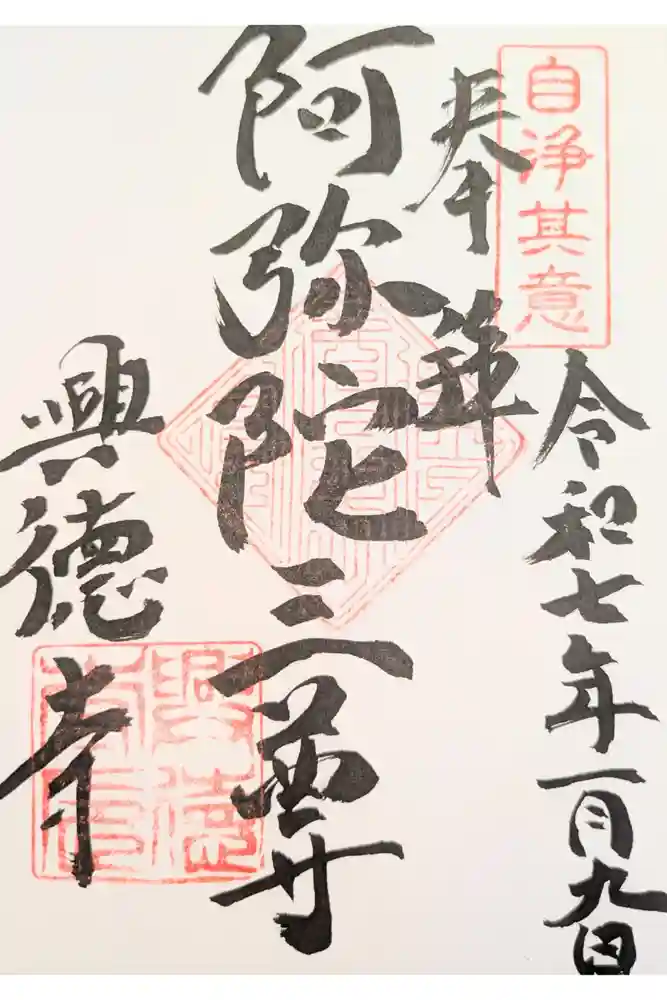 自浄其意
令和七年一月九日
奉拝
阿弥陀三尊
興徳寺